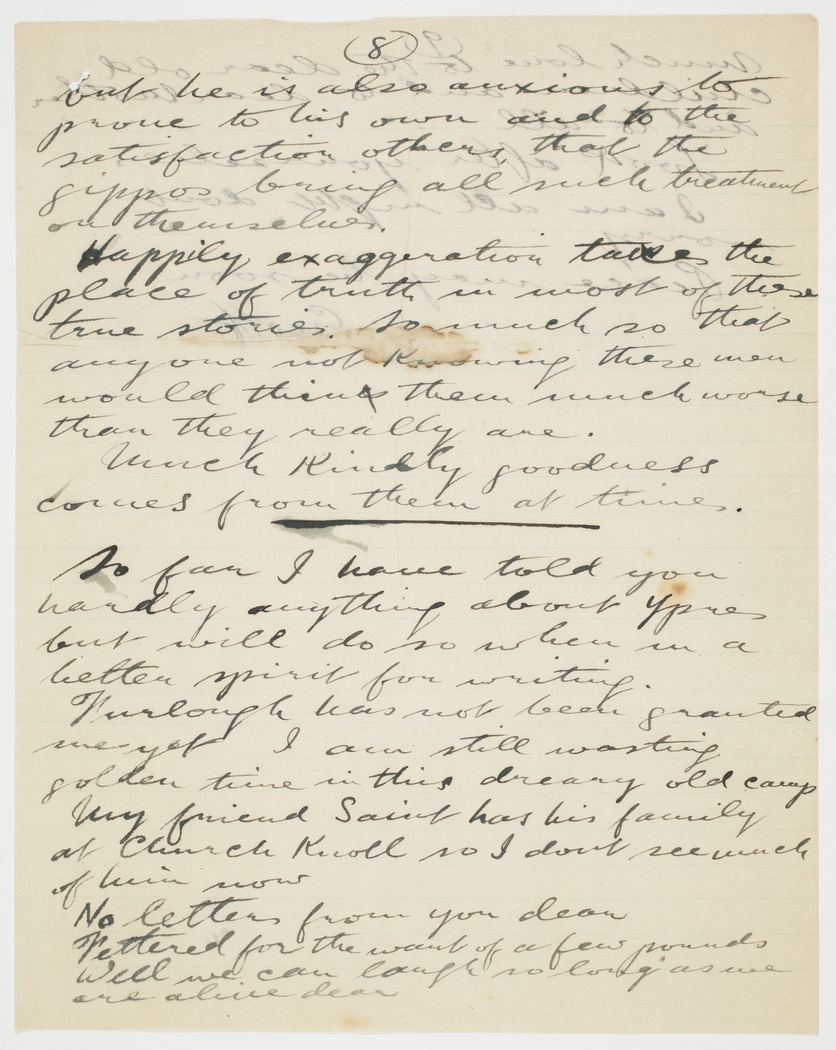 8
but he is also anxious to
prove to his own and to the
satisfaction others, that the
gippos bring all such treatment
on themselves.
Happily exaggeration takes the
place of truth in most of these
true stories. So much so that
anyone not Knowing these men
would think them much worse
than they really are.
Much Kindly goodness
comes from them at times.
So far I have told you
hardly anything about Ypres
but will do so when in a
better spirit for writing.
Furlough has not been granted
me yet I am still wasting
golden time in this dreary old camp
My friend Saint has his family
at Church Knoll so I dont see much
of him now
No letters from you dear
Fettered for the want of a few pounds
Well we can laugh so long as we
are alive dear